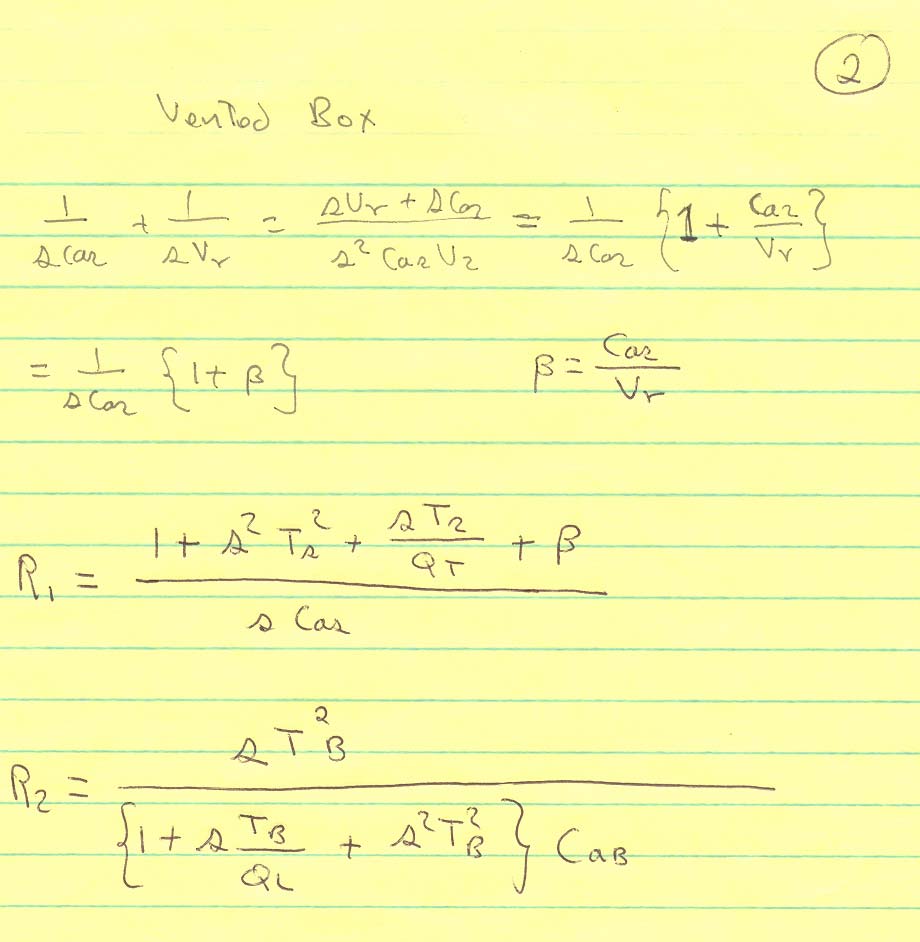 2
Vented Box
1/(sCas) + 1/(sVr) = (sVr + sCas)/(s² Cas Vr) = 1/(sCas) {1 + Cas/Vr}
= 1/(sCas) {1 + β}    β = Cas/Vr
R₁ = (1 + s² Ts² + sTs/QT + β)/(s Cas)
R₂ = (s T²B)/({1 + s TB/QL + s²T²B} CaB)